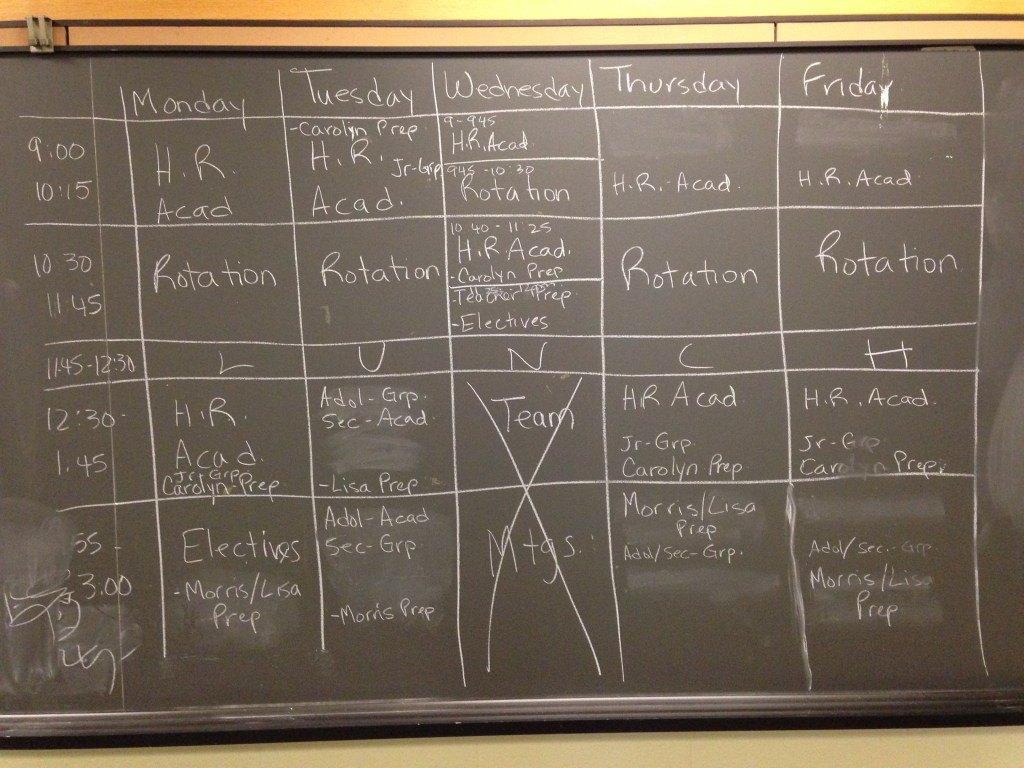 Monday Tuesday Wednesday Thursday Friday
9:00
10:15
H.R.
Acad
-Carolyn Prep
H.R.
Jr-Grp
Acad.
9-945
H.R. Acad
945-10:30
Rotation
H.R.-Acad.
H.R. Acad.
10:30
11:45
Rotation
Rotation
10:40-11:25
H.R. Acad.
-Carolyn Prep
-Teacher Prep
-Electives
Rotation
Rotation
11:45-12:30 L U N C H
12:30-
1:45
H.R.
Acad.
Jr Grp
Carolyn-Prep
Adol-Grp.
Sec-Acad.
-Lisa Prep
Team
HR Acad
Jr-Grp
Carolyn Prep
H.R. Acad.
Jr-Grp
Carolyn Prep
55-
3:00
Electives
-Morris/Lisa
Prep
Adol-Acad
Sec-Grp.
-Morris Prep
Mtgs.
Morris/Lisa
Prep
Adol/Sec-Grp.
Adol/Sec.-Grp
Morris/Lisa
Prep